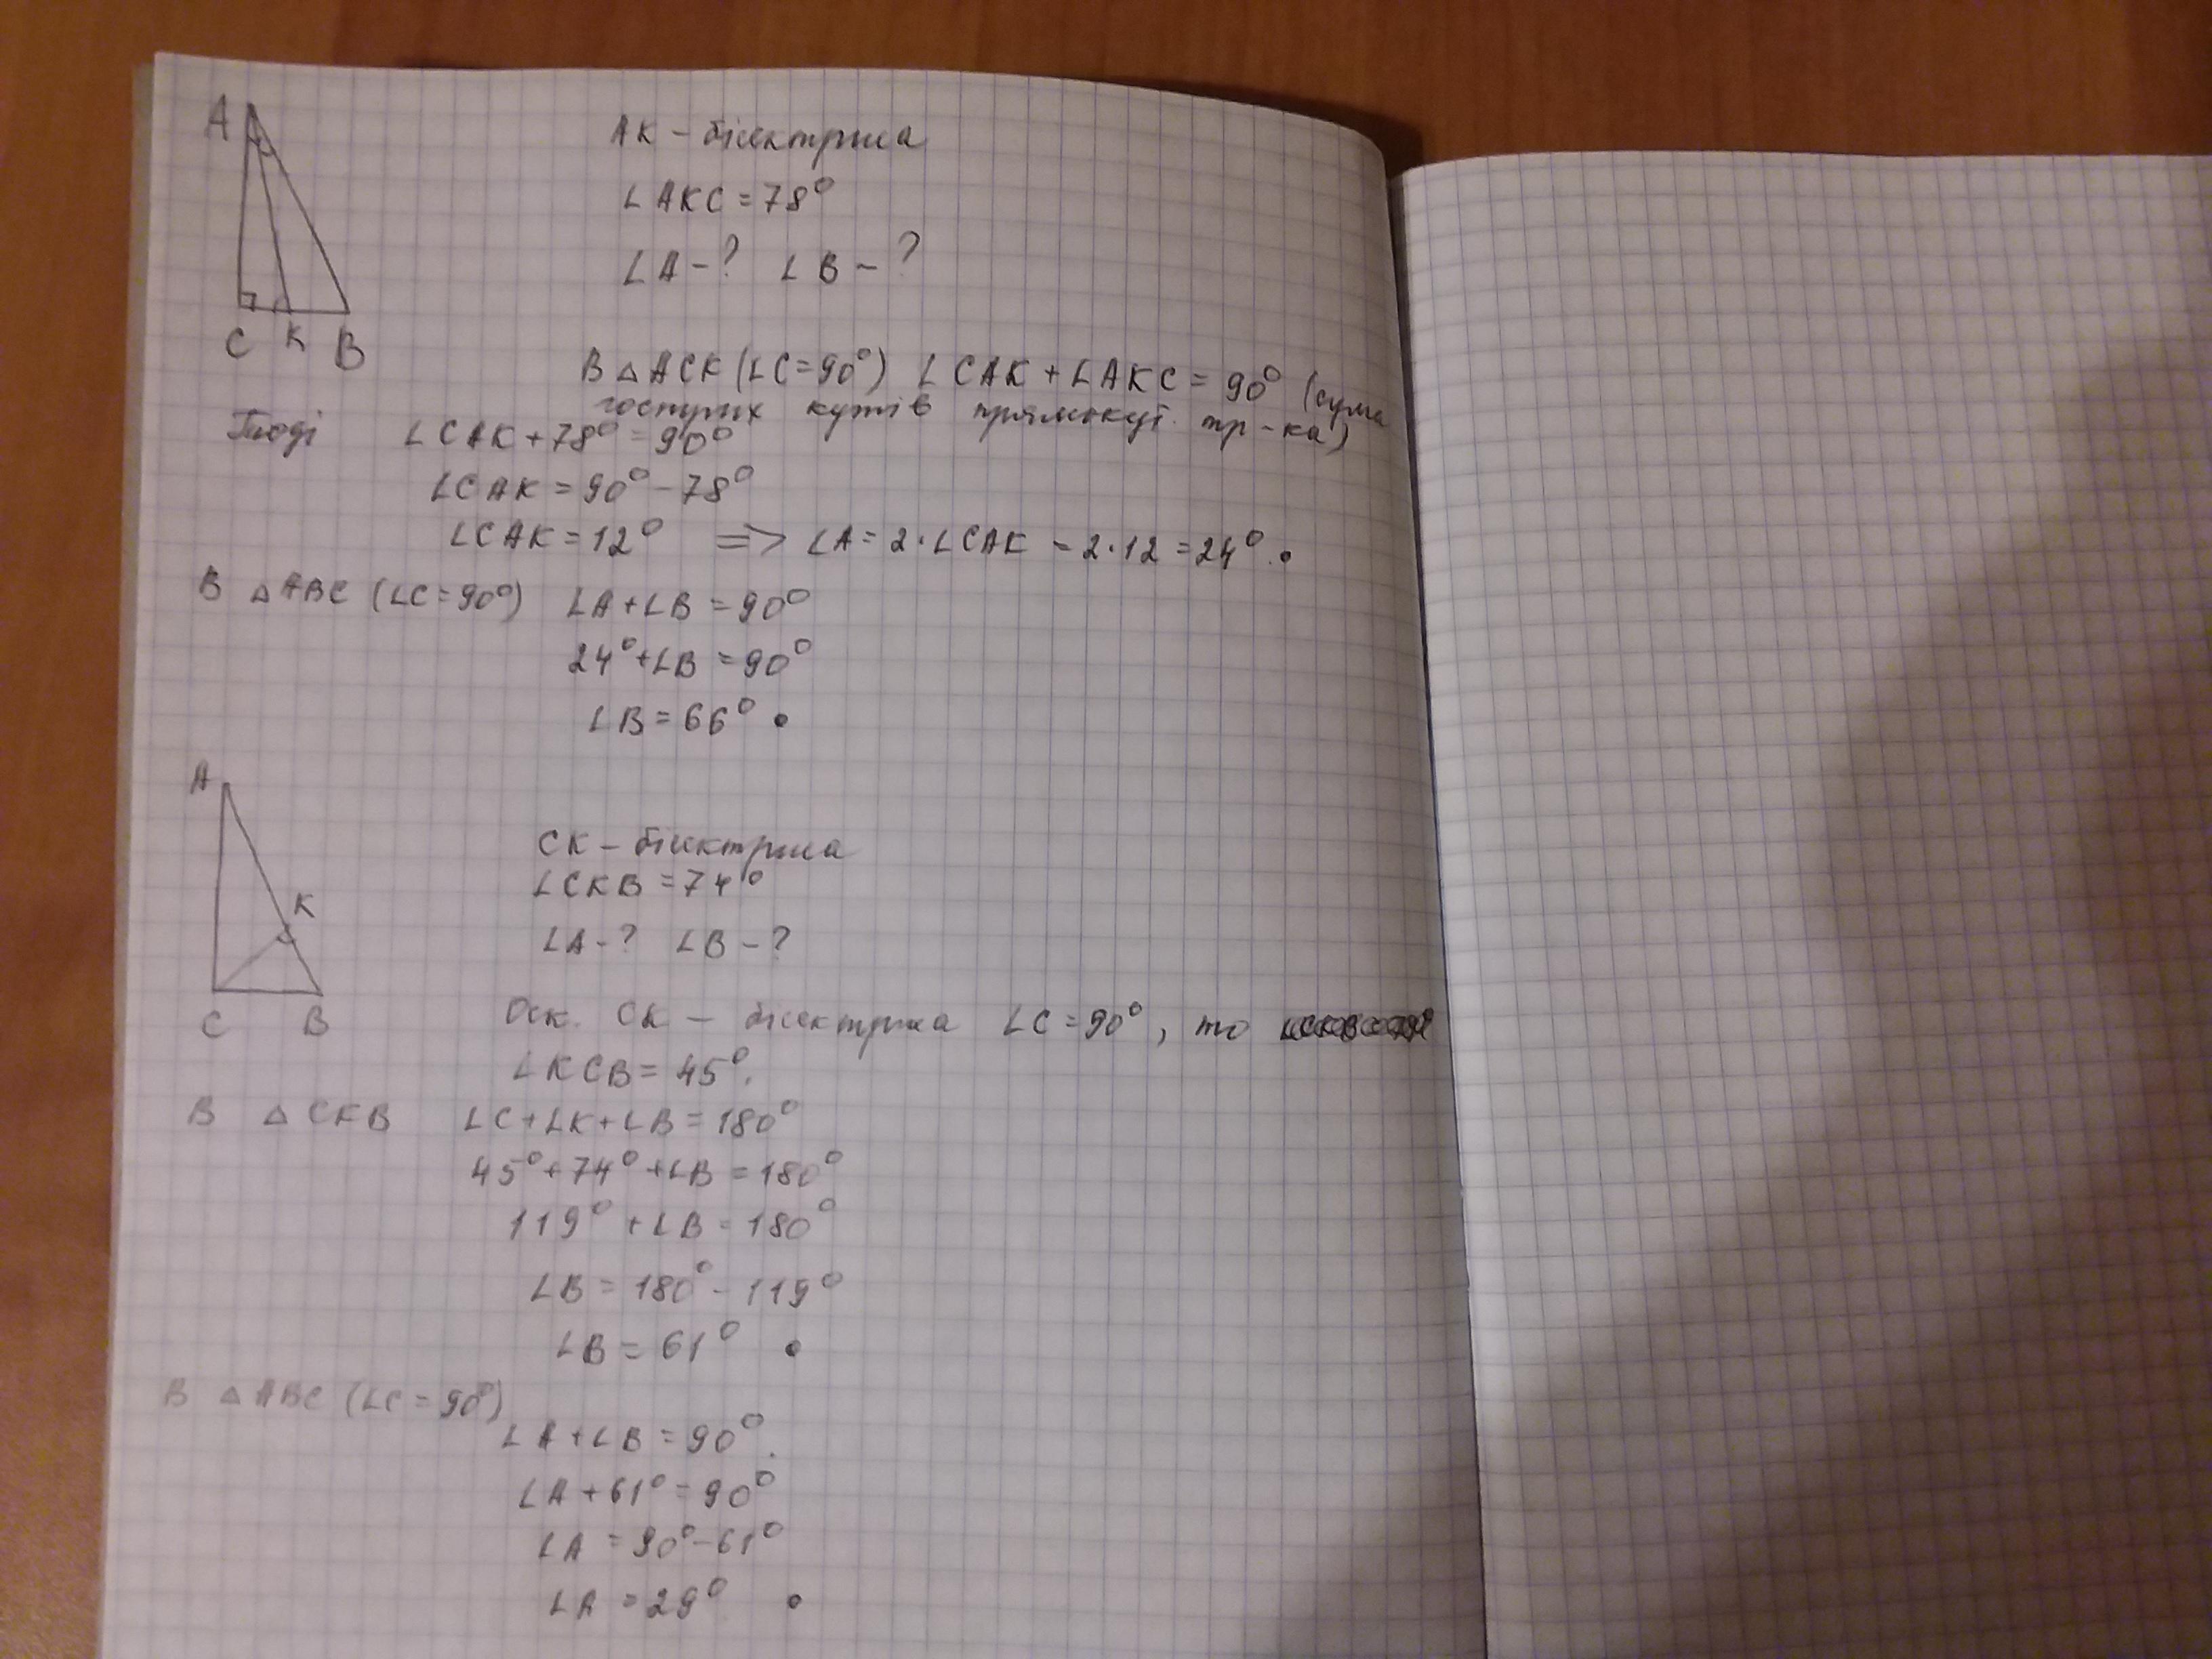 A
C K B
AK – бісектриса
∠AKC = 78°
∠A – ? ∠B – ?
В △ACK (∠C = 90°) ∠CAK + ∠AKC = 90° (сума
гострих кутів прямокут. тр-ка)
Тоді ∠CAK + 78° = 90°
∠CAK = 90° – 78°
∠CAK = 12° => ∠A = 2·∠CAK = 2·12 = 24°.
В △ABC (∠C = 90°) ∠A + ∠B = 90°
24° + ∠B = 90°
∠B = 66°
A
K
C B
CK – бісектриса
∠CKB = 74°
∠A – ? ∠B – ?
Оск. CK – бісектриса ∠C = 90°, то
∠KCB = 45°.
В △CKB ∠C + ∠K + ∠B = 180°
45° + 74° + ∠B = 180°
119° + ∠B = 180°
∠B = 180° – 119°
∠B = 61°
В △ABC (∠C = 90°)
∠A + ∠B = 90°.
∠A + 61° = 90°
∠A = 90° – 61°
∠A = 29°